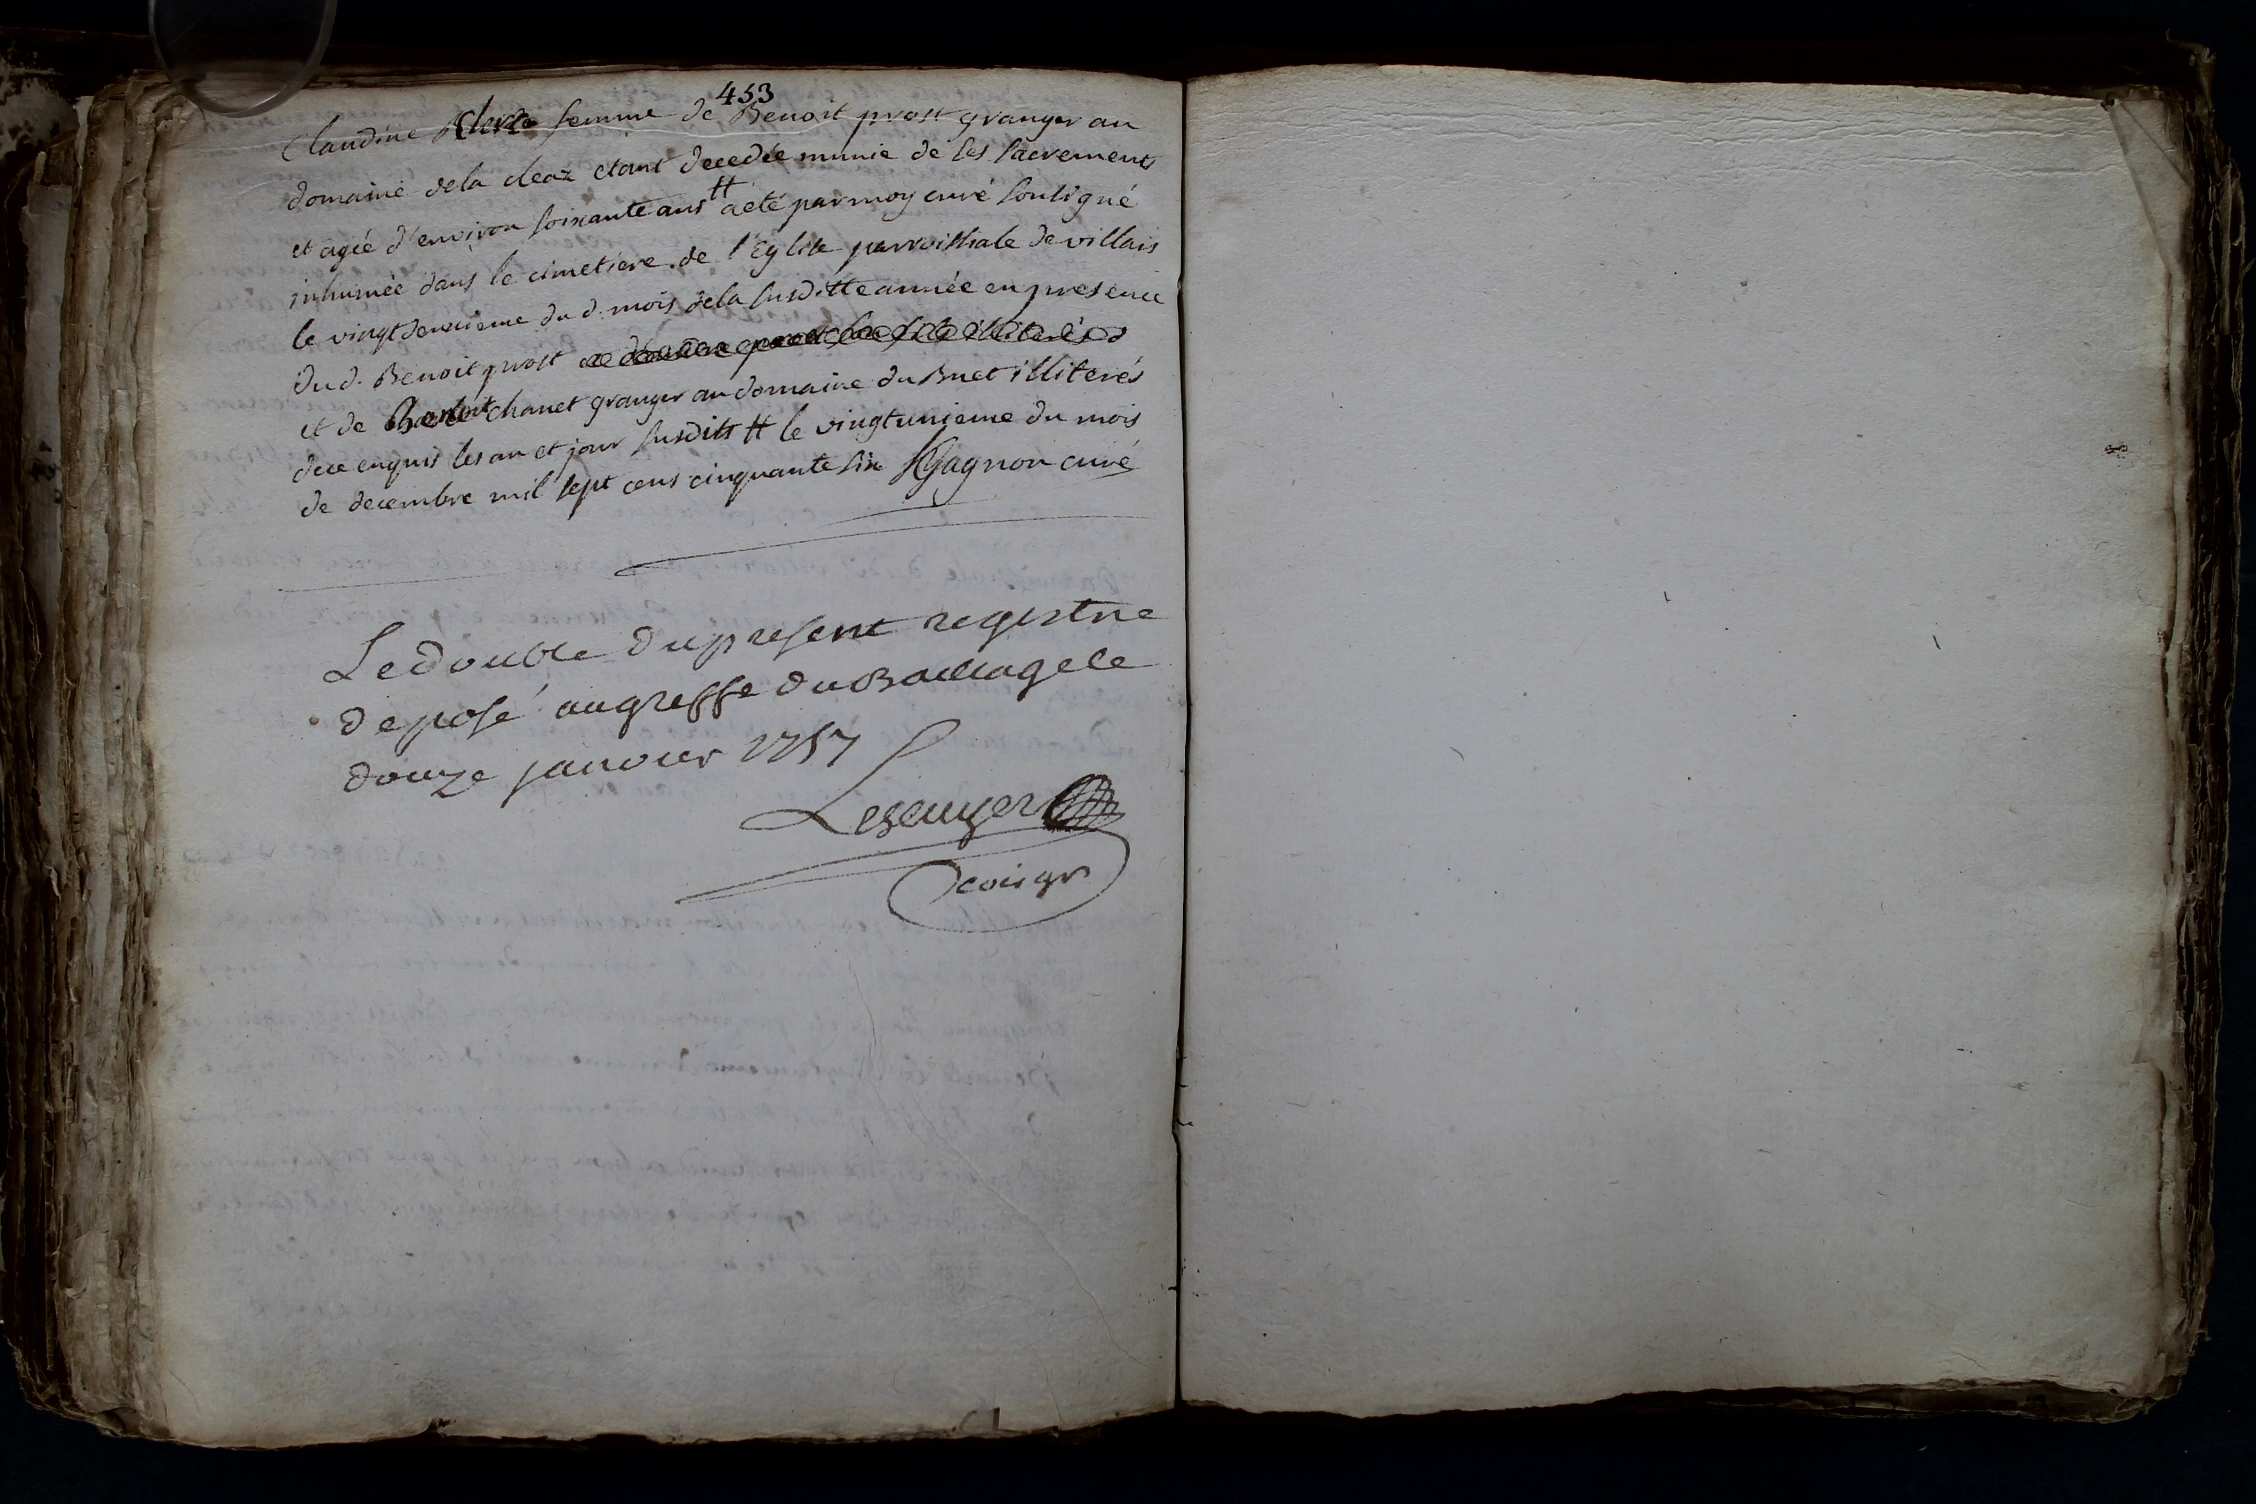 453
Claudine Clerc femme de Benoit prost granger au
domaine dela cleaz etant decedée munie de ses sacrements
et agée d'environ soixante ans # a eté par moy curé soussigné
inhumée dans le cimetiere de l'Eglise parroissiale de villars
le vingtdeuxieme du d. mois dela susditte année en presence
dud. Benoit prost
et de Benoit chanet granger au domaine du Bruet illiterés
dece enquis les an et jour susdits # le vingtunieme du mois
de decembre mil sept cens cinquante six Gagnon curé
Le double du present registre
deposé au greffe du Bailliage le
douze janvier 1757